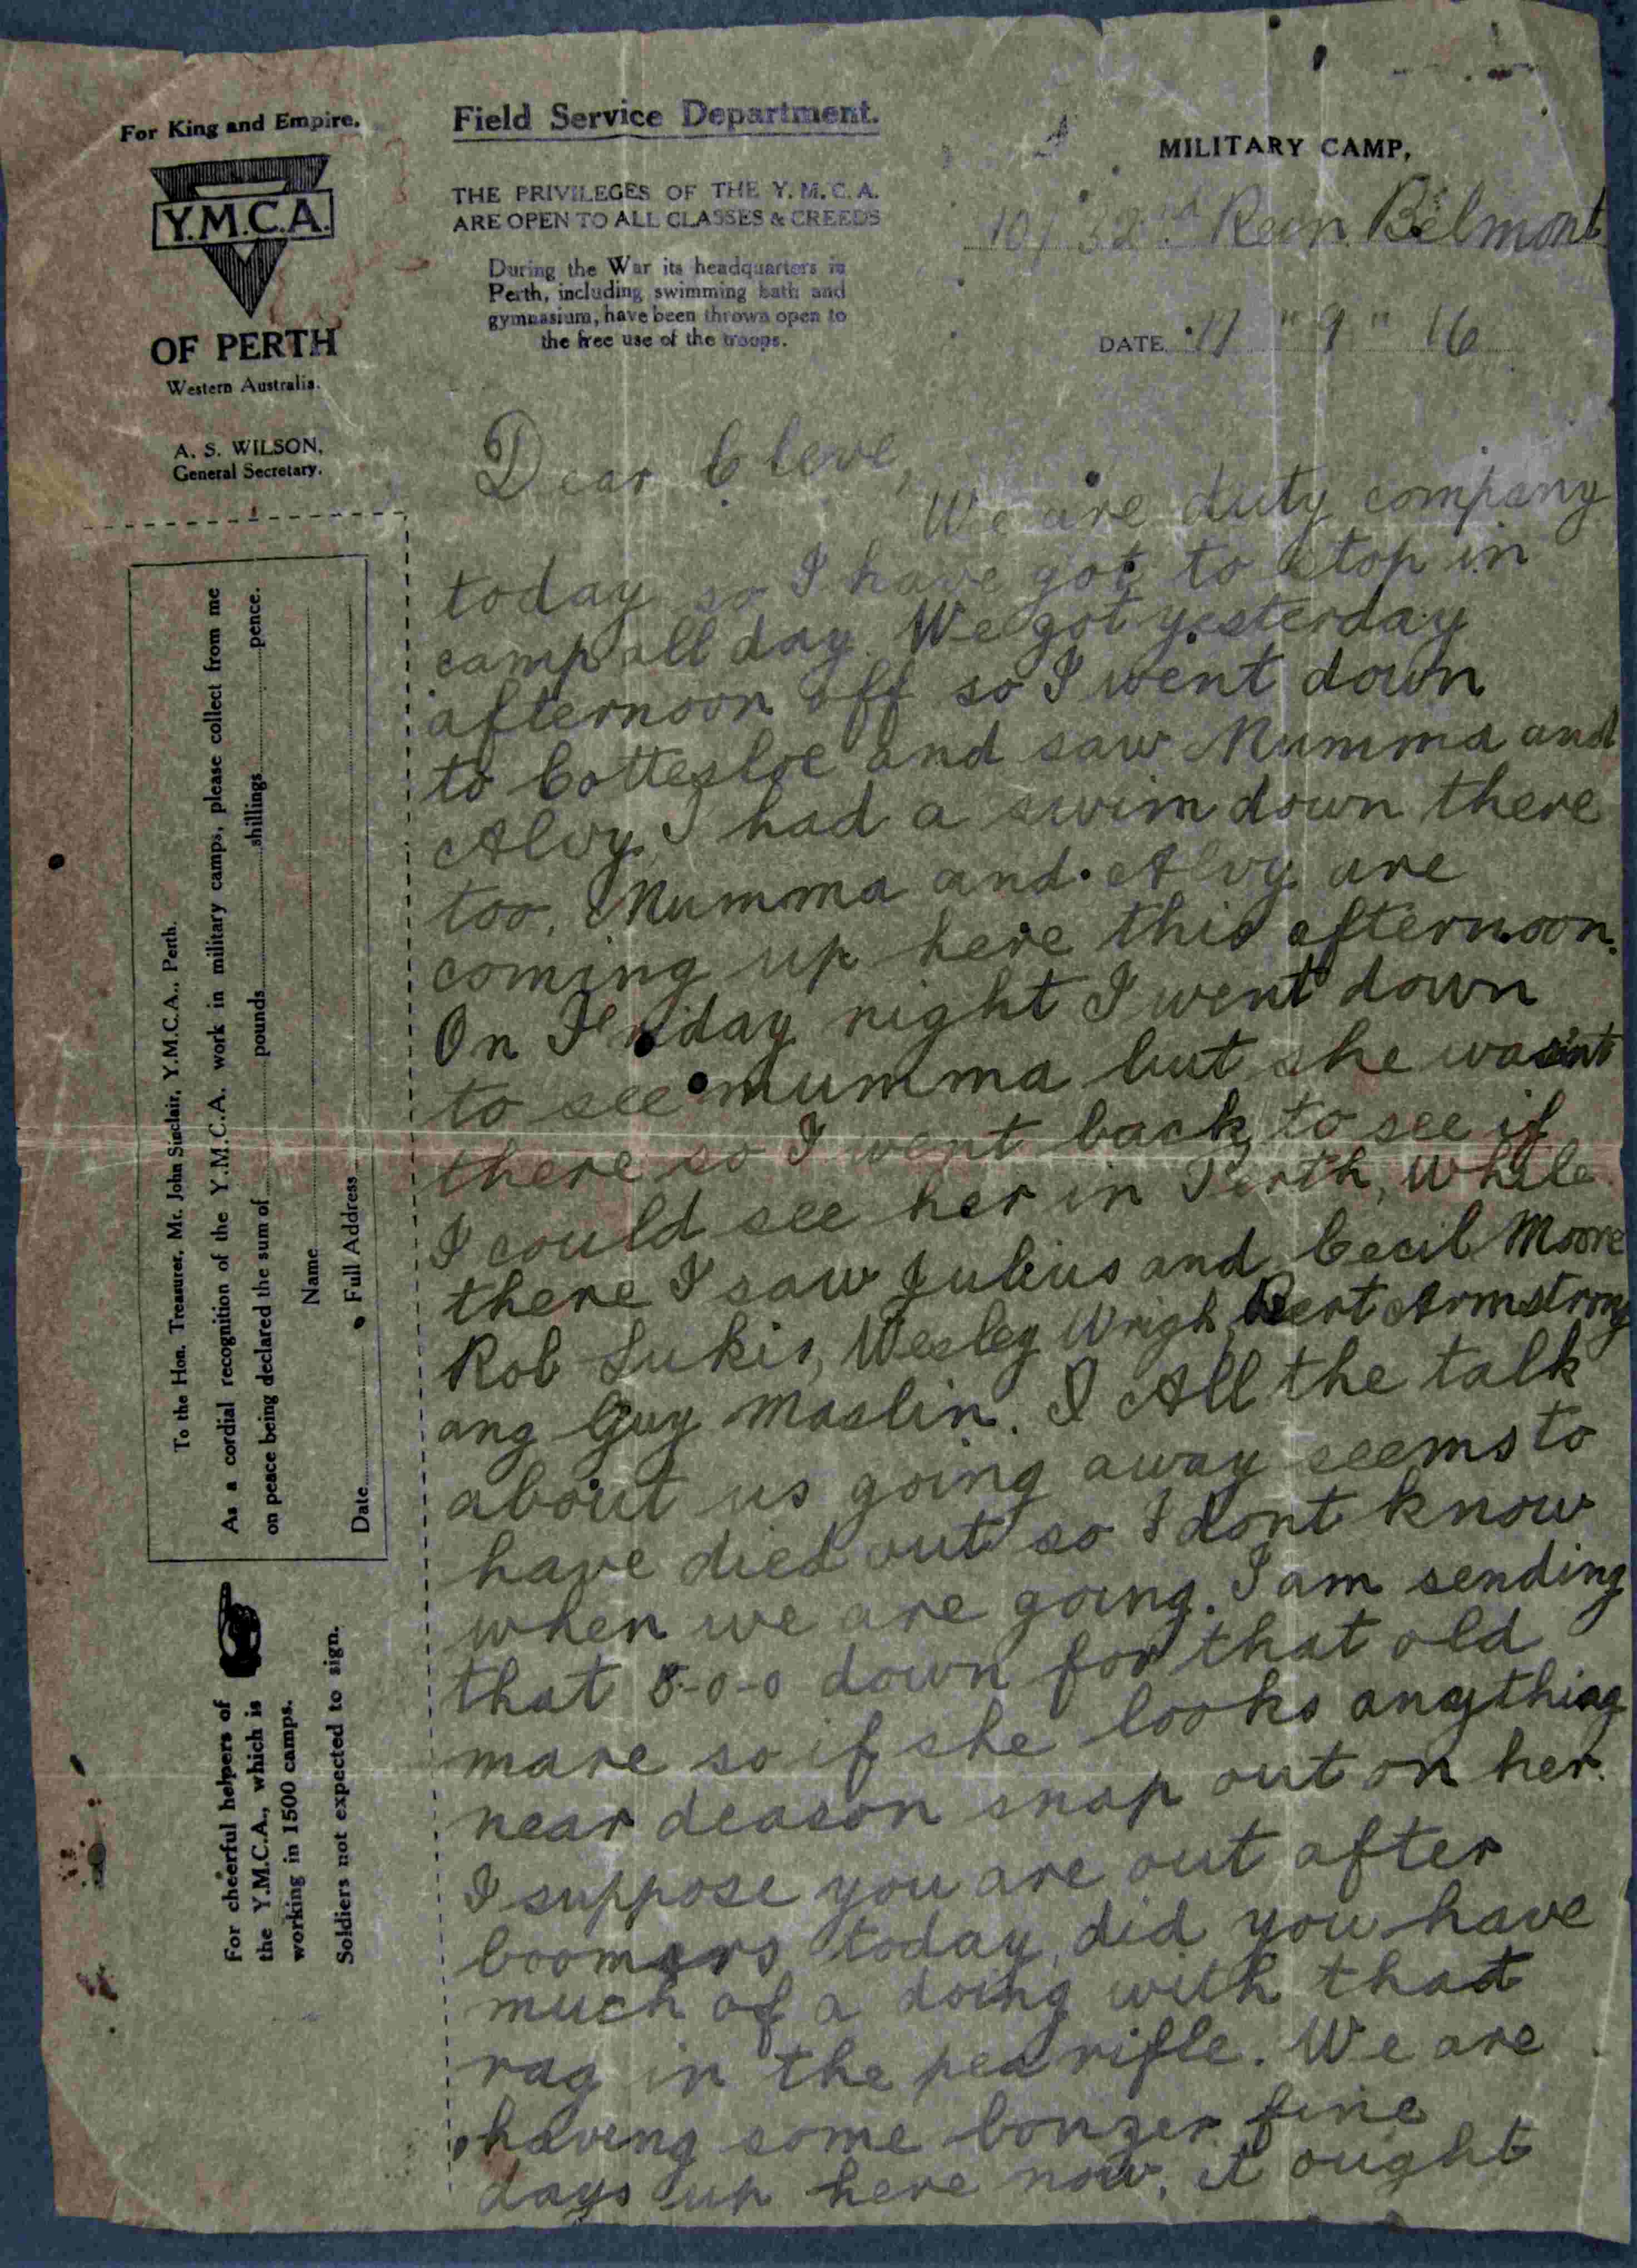 For King and Empire.
Y.M.C.A.
OF PERTH
Western Australia.
A. S. WILSON,
General Secretary.
Field Service Department.
THE PRIVILEGES OF THE Y. M. C. A.
ARE OPEN TO ALL CLASSES & CREEDS
During the War its headquarters in
Perth, including swimming bath and
gymnasium, have been thrown open to
the free use of the troops.
MILITARY CAMP,
10/32nd Rein Belmont
DATE 17 " 9 " 16
Dear Cleve,
We are duty company
today so I have got to stop in
camp all day. We got yesterday
afternoon off so I went down
to Cottesloe and saw Mumma and
Alvy, I had a swim down there
too, Mumma and Alvy are
coming up here this afternoon.
On Friday night I went down
to see mumma but she wasint
there so I went back, to see if
I could see her in Perth, while
there I saw Julius and Cecil Moore
Rob Lukis, Wesley Wrigh, Bert Armstrong
ang Guy Maslin. I All the talk
about us going away seems to
have died out so I dont know
when we are going. I am sending
that 8-0-0 down for that old
mare so if she looks anything
near deason snap out on her.
I suppose you are out after
boomers today, did you have
much of a doing with that
rag in the pea rifle. We are
having some bonzer fine
days up here now, it ought
To the Hon. Treasurer, Mr. John Sinclair, Y.M.C.A., Perth.
As a cordial recognition of the Y.M.C.A. work in military camps, please collect from me
on peace being declared the sum of pounds shillings pence.
Name
Date Full Address
For cheerful helpers of
the Y.M.C.A., which is
working in 1500 camps.
Soldiers not expected to sign.